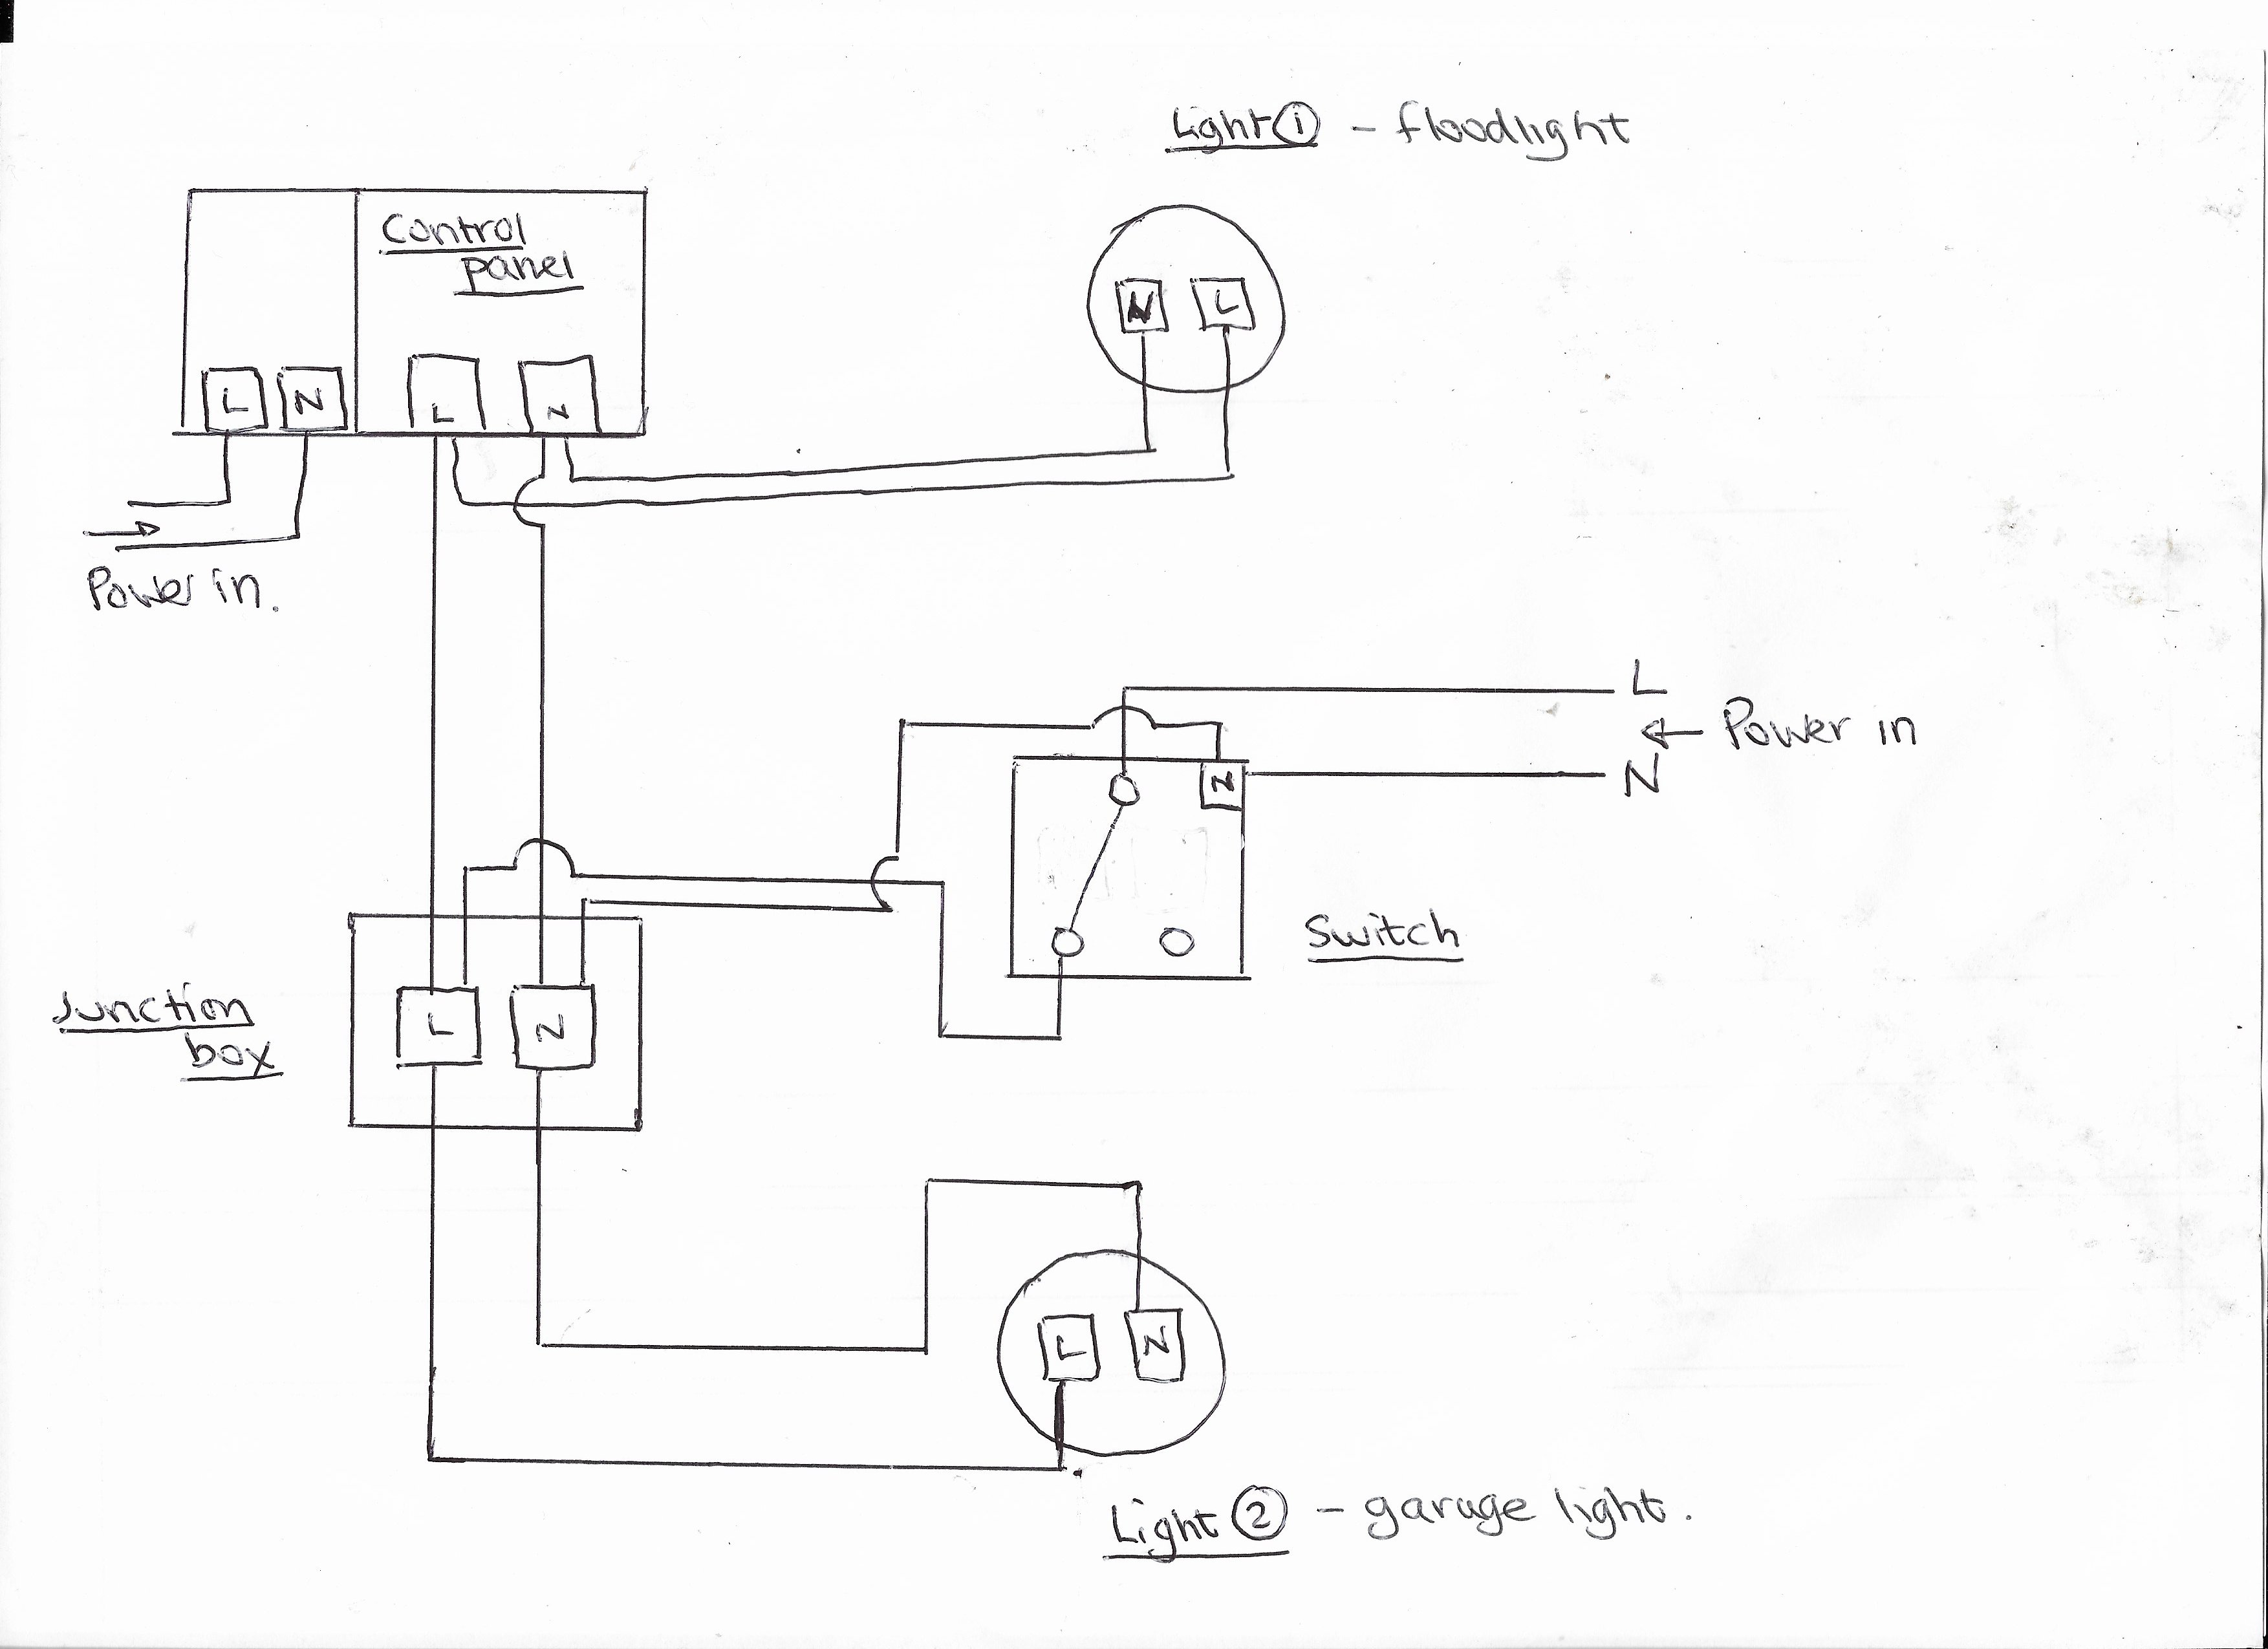 Light ① - floodlight
Control
panel
N L
L N L N
Power in.
L
← Power in
N
N
Switch
Junction
box
L N
L N
Light ② - garage light.